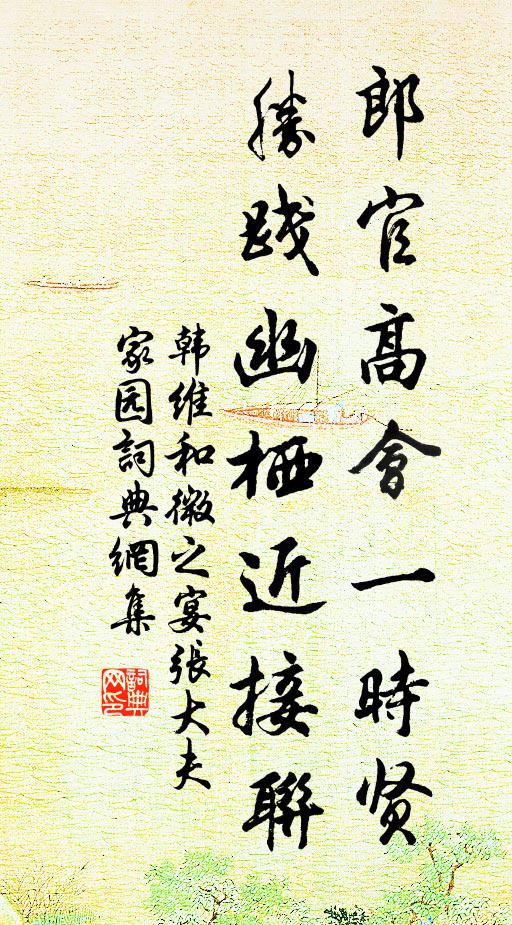 郎官高會一時贤
勝践幽栖近接聯
韩维和微之宴張大夫
家园詞典網集
詞典网印